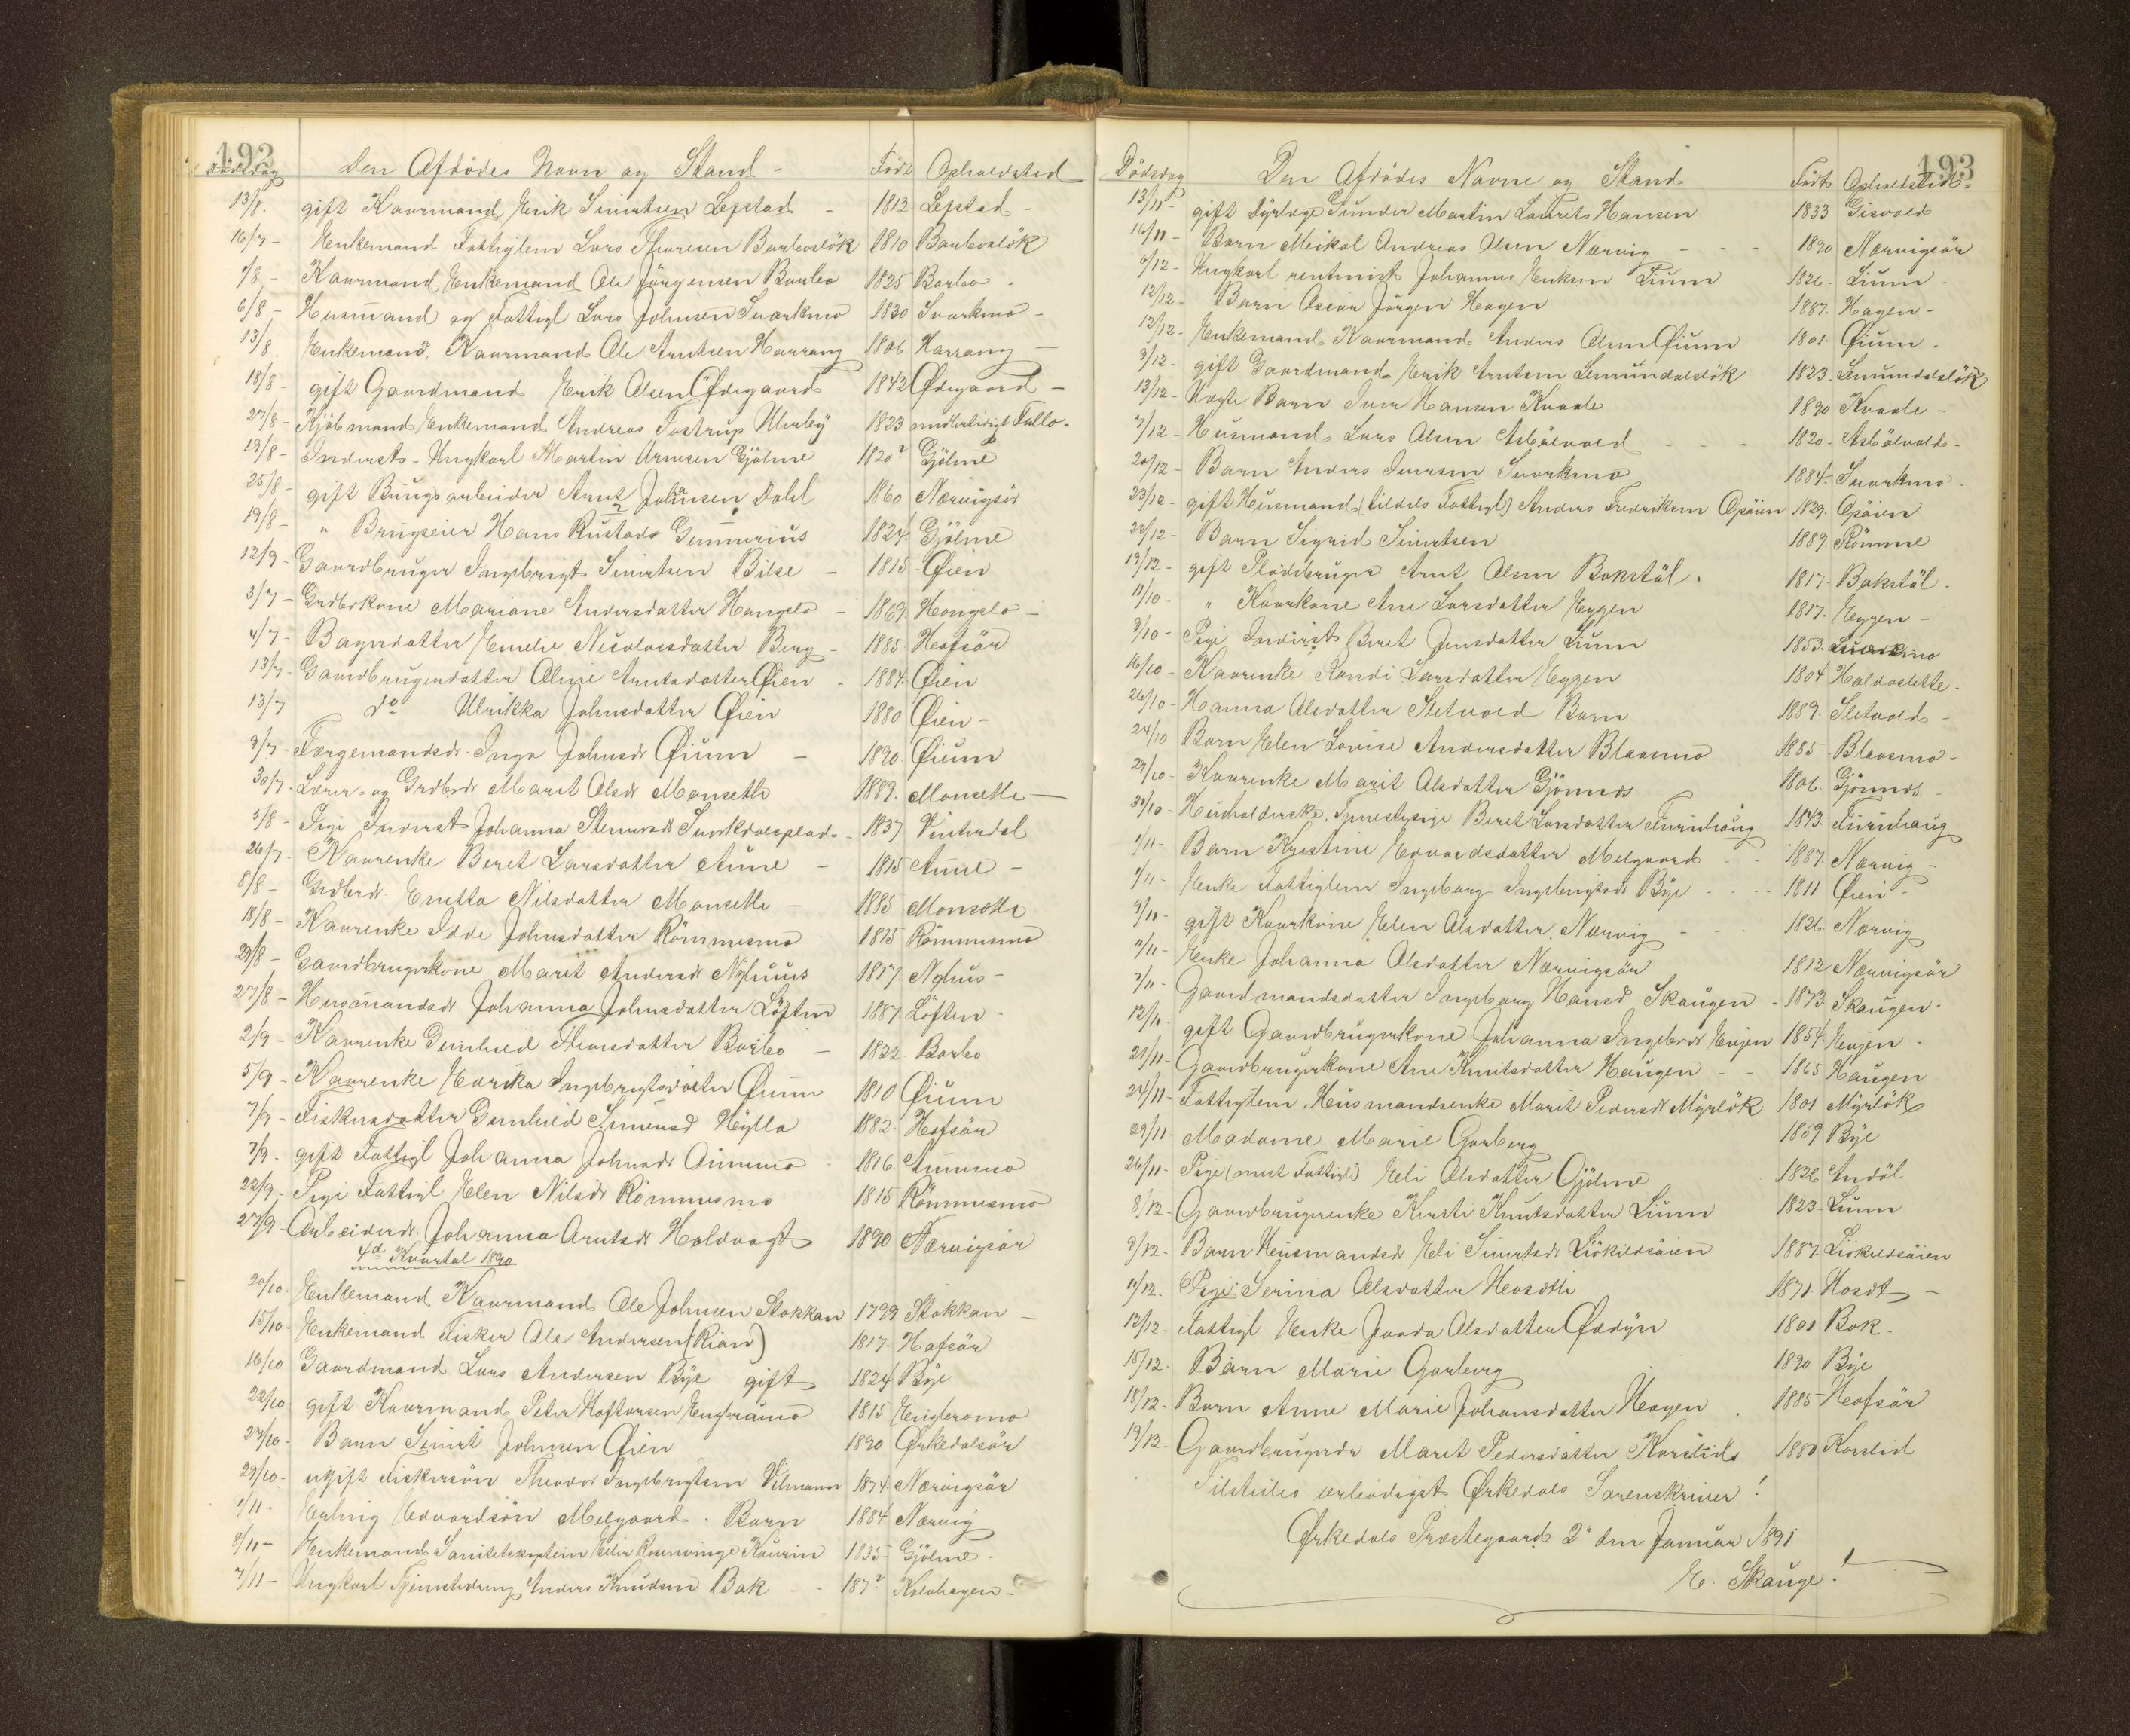 192
Dödsdag Den Afdödes Navn og Stand - Födt Opholdsted
13/8. gift Kaarmand Erik Sivertsen Lefstad - 1813 Lefstad -
16/7 - Enkemand Fattiglem Lars Thoresen Barboslök 1810 Barboslök
7/8 - Kaarmand Enkemand Ole Jörgensen Barbo 1825 Barbo -
6/8 - Husmand og Fattigl Lars Johnsen Svorkmo 1830 Svorkmo -
13/8. Enkemand, Kaarmand Ole Arntsen Harrang 1806 Harrang -
18/8 - gift Gaardmand Erik Olsen Ödegaard 1842 Ödegaard -
27/8 - Kjöbmand Enkemand Andreas Tostrup Urbye 1823 midlertidigt
19/8 - Inderst - Ungkarl Martin Gjölme 1820? Gjölme
25/8 - gift Brugsarbeider Arnt Johansen Dahl 1860 Nærvigsör
19/8 - " Brugseier Hans Rustad Gunnerius 1824 Gjölme
12/9 - Gaardbruger Ingebrigt Sivertsen Bilse - 1815 Öien
3/7 - Grdbrkone Mariane Andersdatter Hongslo - 1869 Hongslo -
4/7 - Bagerdatter Emelie Nicolaisdatter Berg - 1885 Hofsör
13/7 - Gaardbrugerdatter Oline Arntsdatter Öien - 1884. Öien
13/7 do Ulrikka Johnsdatter Öien 1880 Öien -
9/7 - Færgemandsdr. Inga Johnsdr Öium - 1890. Öium
30/7 - Lærer- og Grdbrdr Marit Olsdr Monsetli 1889. Monsetli -
5/8 - Pige Inderst Johanna - 1837 Vinterdal
26/7 - Kaarenke Beret Larsdatter Aune - 1815 Aune -
8/8 - Grdbrdr. Nilsdatter Monsetli - 1885 Monsetli
18/8 - Kaarenke Johnsdatter Römmesmo 1815 Römmesmo
29/8 - Gaardbrugerkone Marit Andersdr Nyhuus 1857. Nyhus -
27/8 - Husmandsdr Johanna Johnsdatter Löften 1887 Löften -
2/9 - Kaarenke Gunhild Thoresdatter Barbo - 1822 Barbo
5/9 - Kaarenke Ingebrigtsdatter Öium 1810 Öium
7/9 - Fiskersdatter Gunhild Simensd Hylla 1882. Hofsör
7/9 - gift Fattigl Johanna Johnsdr Aunemo - 1816 Aunemo
22/9 - Pige Fattigl Elen Nilsdr Römmesmo 1815 Römmesmo
27/9 - Arbeiderdr. Johanna Arntsdr Holdvagt 1890 Nærvigsör
4d Kvartal 1890
20/10. Enkemand Kaarmand Ole Johnsen Stokkan 1799 Stokkan -
15/10 - Enkemand Fisker Ole Andersen (Rian) 1817. Hofsör
16/10 Gaardmand Lars Andersen Bye gift 1824 Bye
22/10 - gift Kaarmand Peter Engbramo 1815
27/10 - Barn Sivert Johnsen Öien 1890 Örkedalsör
29/10 - ugift Fiskersön Theodor Ingebrigtsen Vilmann 1874. Nærvigsör
1/11 - Erling Edvardsön Melgaard. Barn 1884. Nærvig
8/11 - Enkemand Sanitetskaptein Rosenvinge Kaurin 1835 Gjölme -
7/11 - Ungkarl Anders Knudsen Bak - - 187?
193
Dödsdag Den Afdödes Navne og Stand Födt Opholdsted
13/11 - gift Dyrlæge Gunder Martin Laurits Hansen 1833 Gisvold
16/11 - Barn Meikal Andreas Olsen Nærvig - - - 1890 Nærvigsör
6/12 - Ungkarl Johannes Eriksen Lium 1826. Lium -
12/12 - Barn Oscar Jörgen Hagen 1887. Hagen -
12/12 - Enkemand Kaarmand Anders Olsen Öium 1801. Öium -
9/12 - gift Gaardmand Erik Arntsen 1823.
13/12 - Barn Iver Hansen Kvaale 1890 Kvaale -
7/12 - Husmand Lars Olsen Asbölvold - - - 1820. Asbölvold -
20/12 - Barn Anders Iversen Svorkmo 1884. Svorkmo -
23/12 - gift Husmand (tildels Fattigl) Anders Fredriksen Opöien 1829. Opöien
29/12 - Barn Sigrid Sivertsen 1889. Römme
19/12 - gift Arnt Olsen Bakstöl. 1817. Bakstöl -
11/10 - " Kaarkone Ane Larsdatter Eggen 1817. Eggen -
9/10 - Pige Inderst Beret Jensdatter Lium 1853.
16/10 - Kaarenke Randi Larsdatter Eggen 1804 Haldosletta -
26/10 - Hanna Olsdatter Sletvold Barn 1889. Sletvold -
24/10 Barn Elen Lovise Andersdatter Blaasmo 1885. Blaasmo -
29/10 - Kaarenke Marit Olsdatter Gjönnes 1806. Gjönnes -
31/10 - Husholderske, Tjenestepige Beret Larsdatter Furuhaug 1843. Furuhaug
1/11 - Barn Kristine Edvardsdatter Melgaard - - 1887. Nærvig -
1/11 - Enke Fattiglem Ingeborg Ingebrigtsdr Bye - - - 1811 Öien -
9/11 - gift Kaarkone Elen Olsdatter Nærvig - - - 1826 Nærvig
11/11 - Enke Johanna Olsdatter Nærvigsör 1812 Nærvigsör
7/11 - Gaardmandsdatter Ingeborg Hansd Skaugen - 1873 Skaugen -
12/11 - gift Gaardbrugerkone Johanna Ingebrdr Evjen 1854. Evjen -
21/11 - Gaardbrugerkone Ane Knutsdatter Haugen - - 1865 Haugen
24/11 - Fattiglem, Husmandsenke Marit Pedersdr Myrlök 1801 Myrlök
29/11 - Madame Marie Garberg 1859 Bye
26/11 - Pige (Fattigl) Eli Olsdatter Gjölme 1826 Indöl
8/12 - Gaardbrugerenke Kirsti Knutsdatter Lium 1823 - Lium
9/12 - Barn Husmandsdr Eli Sivertsdr 1887.
11/12. Pige Serina Olsdatter 1871.
12/12 - Fattigl Enke Olsdatter 1801 Bak -
15/12. Barn Marie Garberg 1890 Bye
18/12 - Barn Anne Marie Johansdatter Hagen 1885 - Hofsör
19/12 - Gaardbrugerdr Marit Pedersdatter Korslid 1880 Korslid
Tilstilles ærbödigst Örkedals Sorenskriver!
Örkedals Præstegaard 2n den Januar 1891
E. Skauge!